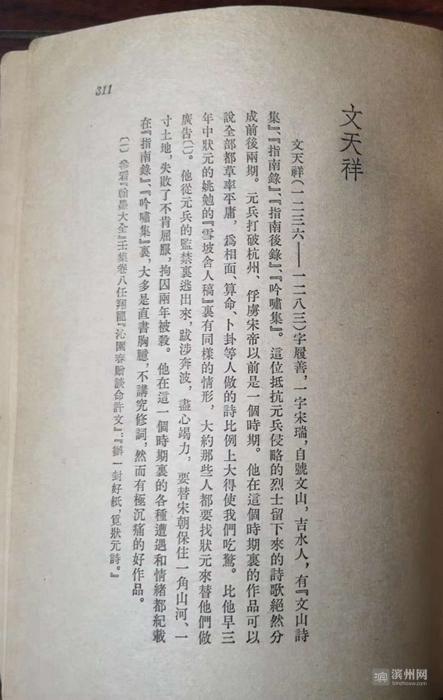 文天祥
文天祥(一二三六——一二八三)字履善，一字宋瑞，自號文山，吉水人，有『文山詩
集』、『指南錄』、『指南後錄』、『吟嘯集』。這位抵抗元兵侵略的烈士留下來的詩歌絕然分
成前後兩期。元兵打破杭州、俘虜宋帝以前是一個時期。他在這個時期裏的作品可以
說全部都草率平庸，爲相面、算命、卜卦等人做的詩比例上大得使我們吃驚。比他早三
年中狀元的姚勉的『雪坡舍人稿』裏有同樣的情形，大約那些人都要找狀元來替他們做
廣告〔一〕。他從元兵的監禁裏逃出來，跋涉奔波，盡心竭力，要替宋朝保住一角山河、一
寸土地，失敗了不肯屈服，拘囚兩年被殺。他在這一個時期裏的各種遭遇和情緒都紀載
在『指南錄』、『吟嘯集』裏，大多是直書胸臆，不講究修詞，然而有極沉痛的好作品。
〔一〕 參看『翰墨大全』壬集卷八任翔龍『沁園春贈談命許文』：『辦一封好紙，覓狀元詩。』
311
滨州网
binzhouw.com